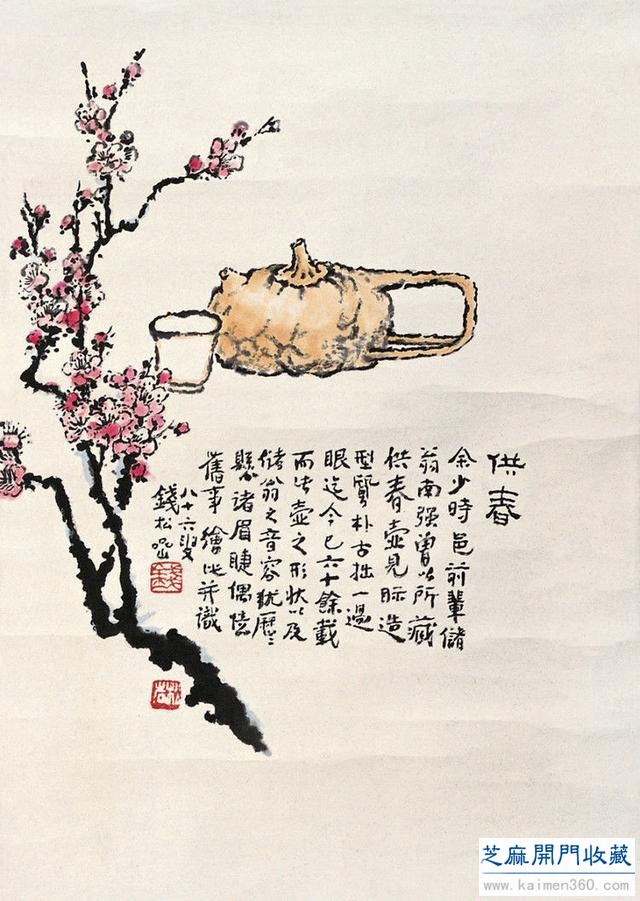 供春
余少時邑前輩儲
翁南强曾以所藏
供春壺見眎造
型質朴古拙一過
眼迄今已六十餘載
而此壺之形狀以及
儲翁之音容犹歷〻
懸諸眉睫偶憶
舊事繪此并識
八十六叟
錢松嵒
錢
松嵒
芝麻開門收藏
www.kaimen360.com